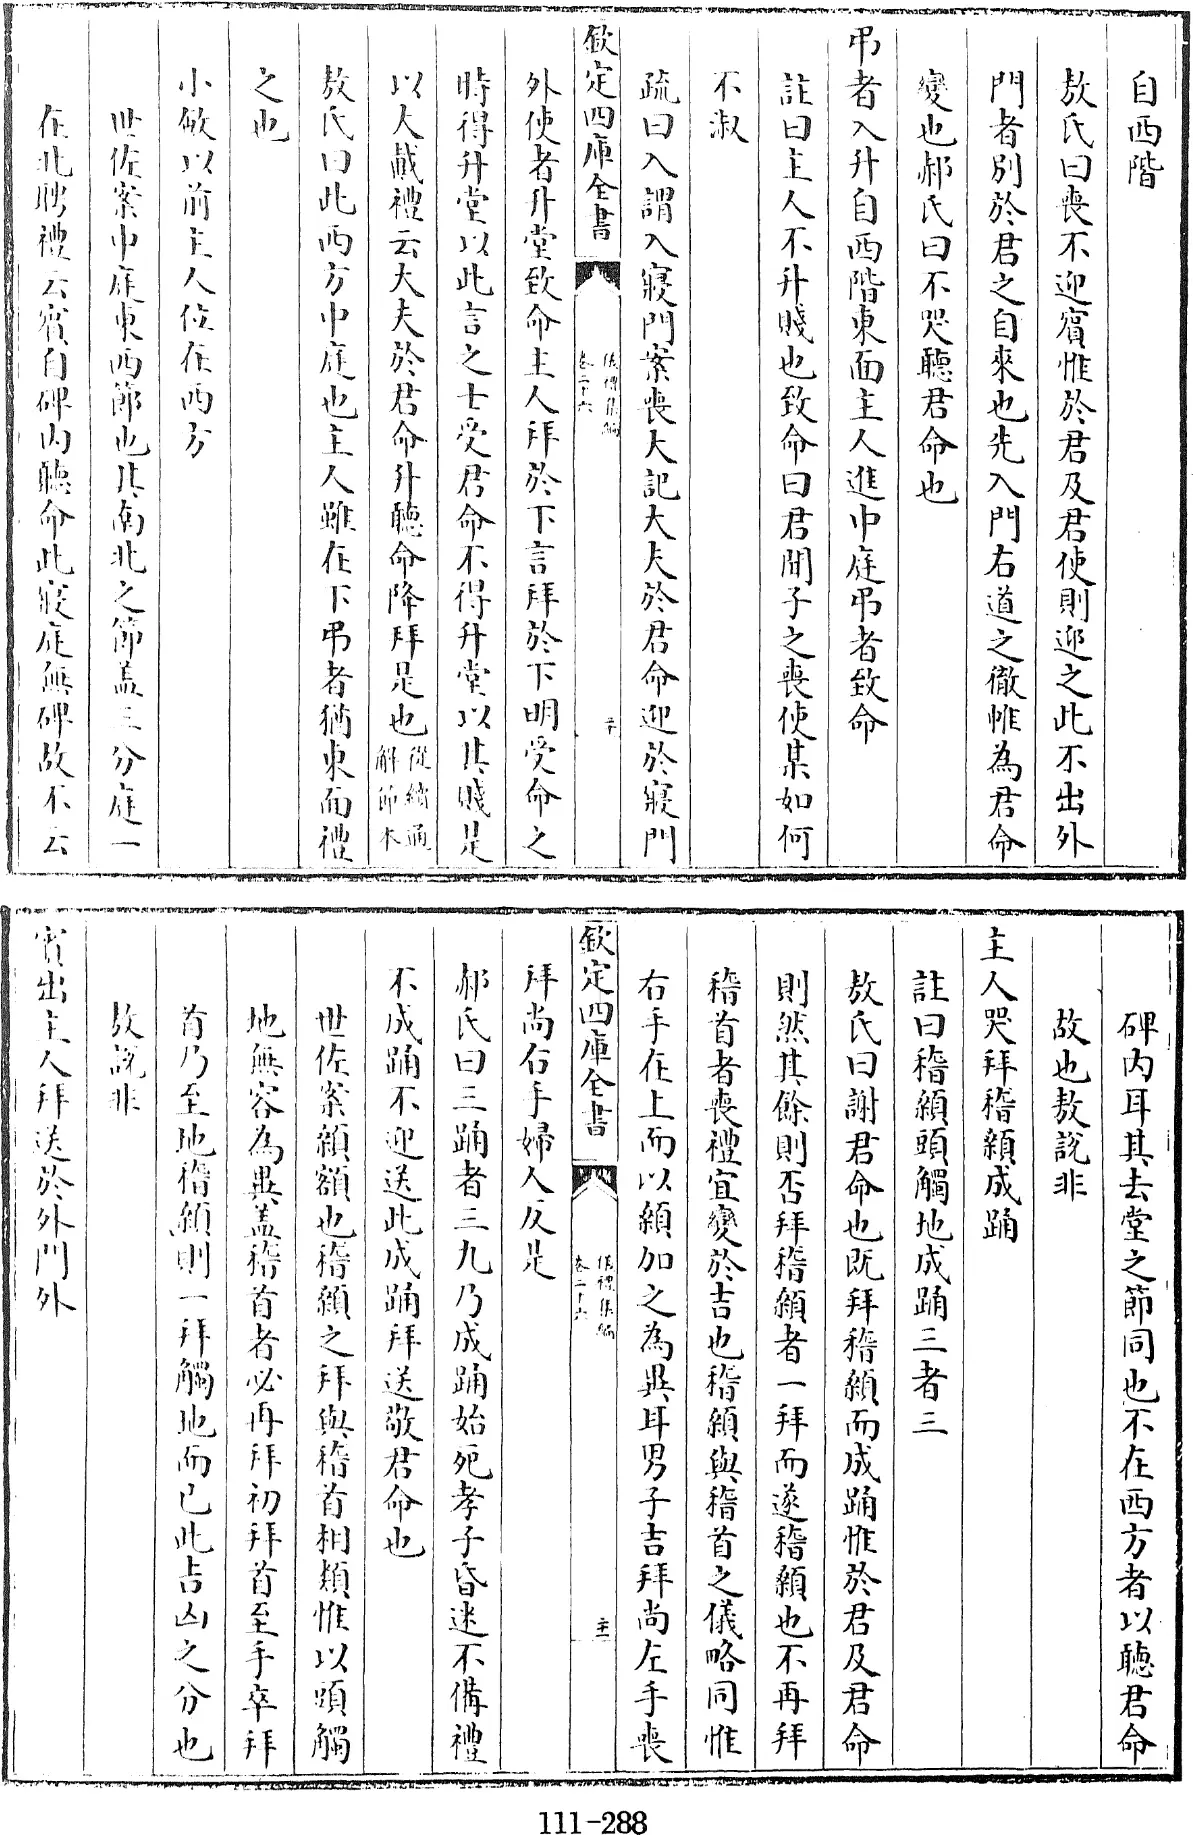 自西階
敖氏曰喪不迎賓惟於君及君使則迎之此不出外
門者別於君之自來也先入門右道之徹帷為君命
變也郝氏曰不哭聽君命也
弔者入升自西階東面主人進中庭弔者致命
註曰主人不升賤也致命曰君聞子之喪使某如何
不淑
疏曰入謂入寢門案喪大記大夫於君命迎於寢門
欽定四庫全書
儀禮集編
卷二十六
二十
外使者升堂致命主人拜於下言拜於下明受命之
時得升堂以此言之士受君命不得升堂以其賤是
以大戴禮云大夫於君命升聽命降拜是也從續通
解節本
敖氏曰此西方中庭也主人雖在下弔者猶東面禮
之也
小斂以前主人位在西方
世佐案中庭東西節也其南北之節蓋三分庭一
在北聘禮云賓自碑内聽命此寢庭無碑故不云
碑内耳其去堂之節同也不在西方者以聽君命
故也敖說非
主人哭拜稽顙成踊
註曰稽顙頭觸地成踊三者三
敖氏曰謝君命也既拜稽顙而成踊惟於君及君命
則然其餘則否拜稽顙者一拜而遂稽顙也不再拜
稽首者喪禮宜變於吉也稽顙與稽首之儀略同惟
右手在上而以顙加之為異耳男子吉拜尚左手喪
欽定四庫全書
儀禮集編
卷二十六
主
拜尚右手婦人反是
郝氏曰三踊者三九乃成踊始死孝子昏迷不備禮
不成踊不迎送此成踊拜送敬君命也
世佐案顙額也稽顙之拜與稽首相類惟以頭觸
地無容為異蓋稽首者必再拜初拜首至手卒拜
首乃至地稽顙則一拜觸地而已此吉凶之分也
敖說非
賓出主人拜送於外門外
111-288